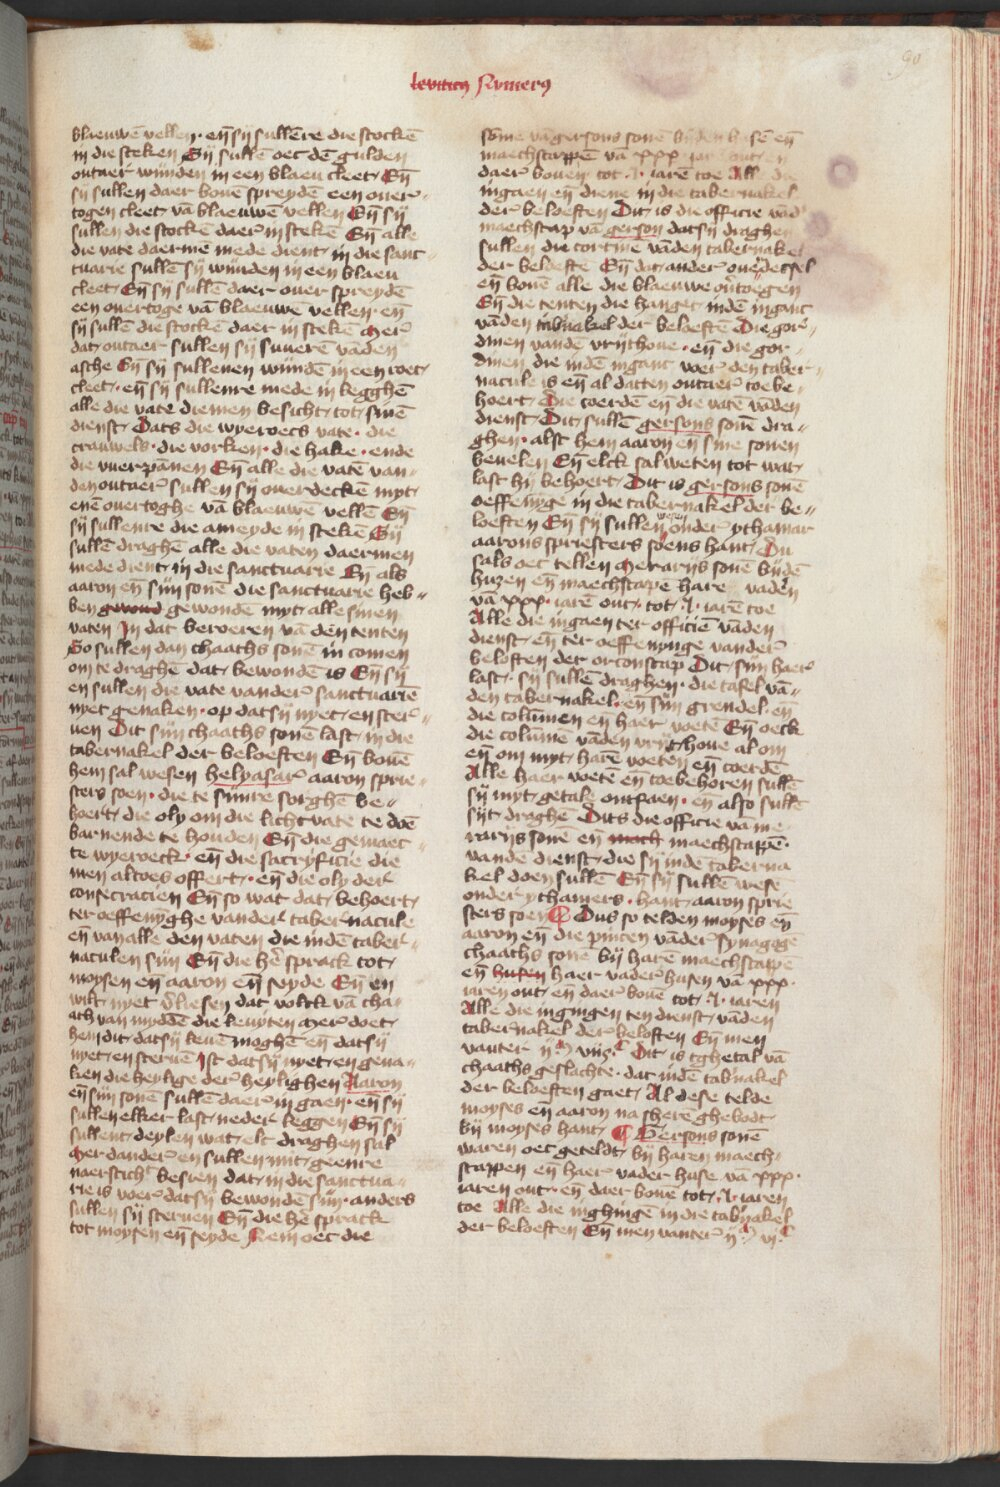 leviticus Numerus
90
blaeuwē vellen · eñ sij sullē re die stockē
in die steken Sij sullē oec dē gulden
outaer winden in een blaeu cleet Eñ
sij sullen daer bouē spreydē een ouer-
togen cleet vā blaeuwē vellen Eñ sij
sullen die stockē daer in stekē Eñ alle
die vate daermē mede dient in die sanc-
tuarie sullē sij winden in een blaeu
cleet Eñ sij sullē daer ouer spreydē
een ouertoge vā blaeuwē vellen · eñ
sij sullē die stockē daer in stekē Mer
dat outaer sullen sij suuerē vāden
asche Eñ sij sullenen windē in een roet
cleet · eñ sij sullenre mede in legghē
alle die vate diemen besicht tot sinē
dienst Dats die wyeroecs vate · die
crauwels · die vorken · die halke · ende
die vuerpānen Eñ alle die vatē van
den outaer sullen sij ouerdeckē myt
enē ouertoghe vā blaeuwē vellē Eñ
sij sullenre die ameyde in stekē Sij
sullē draghē alle die vaten daermen
mede dient in die sanctuarie Eñ als
aaron eñ sijn sonē die sanctuarie heb-
ben gewond gewondē myt alle sinen
vaten In dat beroeren vā dēn tenten
So sullen dan chaaths sonē in comen
om te draghē dat bewondē is Eñ sij
en sullen die vate vander sanctuariē
nyet genaken · op dat sij nyet en ster-
uen Dit sijn chaaths sonē last in die
tabernakel der beloeften Eñ bouē
hem sal wesen helyasar aaron sprie-
sters soen · die te sinre sorghē be-
hoert die oly om die lichtvate te doē
barnende te houden Eñ die gemaec
te wyeroeck · eñ die sacryficie die
men altoes offert · eñ die oly der
consecracien Eñ so wat dat behoert
ter oeffenȳghe vander tabernacule
eñ van alle den vaten die indē taber-
naculen sijn Eñ die hē sprack tot
moysen eñ aaron eñ seyde Eñ en
wilt nyet vliesen dat volck vā cha-
ath van myddē die leuyten Mer doet
hem dit dat sij leuē moghē eñ dat sij
nyet en steruē Ist dat sij nyet en gena-
ken die heylige der heylighen Aaron
eñ sijn sonē sullē daer in gaen · eñ sij
sullen elker last neder leggen Eñ sij
sullent deylen wat elc draghen sal
Mer dander en sullen mit geenre
naersticht besien dat in die sanctua-
rie is voer dat sij bewondē sijn · anders
sullen sij steruen Eñ die hē sprack
tot moysen eñ seyde Nem oec die
sōme vā gersons sonē bijden husē eñ
maechscappē vā xxx iar out en
daer bouen tot · l · iarē toe Alle die
ingaen eñ dienē in die tabernakel
der beloeften Dit is die officie vād
maechscap vā gerson dat sij draghen
sullen die cortinē vāden tabernakel
der beloeftē Eñ dat ander ouerdecsel
eñ bouē alle die blaeuwe ouertoegen
Eñ die tenten die hanget indē ingāc
vāden tabnakel der beloeftē Die gor-
dinen vandē vrijthoue · eñ die gor-
dinen die indē ingāc voer den taber-
nacule is eñ al datten outaer toe be-
hoert Die coerdē eñ die vatē vāden
dienst Dit sullē gersons sonē dra-
ghen · alst hem aaron eñ sine sonen
beuelen Eñ elck sal weten tot wat
last hij behoert Dit is gersons sonē
oeffenȳge in die tabernakel der be-
loeften Eñ sij sullen wesen onder ythamar
aarons spriesters soens hant Du
sals oec tellen Merarijs sonē bijdē
huzen eñ maechscape hare vaderen
vā xxx · iarē out · tot · l · iarē toe
Alle die ingaen ter officiē vāden
dienst eñ ter oeffenynge vander
beloften der orconscap Dit sijn haer
last · sij sullē draghen · die tafel vā-
den tabernakel · eñ sijn grendel · eñ
die colūmen eñ haer voetē Eñ oeck
die colūmē vāden vrijthoue al om
eñ om myt harē voeten eñ coerdē
Alle haer voetē eñ toebehoren sullē
sij myt getale ontfaen · en also sullē
sijt draghē Dits die officie vā me-
rarijs sonē eñ mach maechscappē ·
vandē dienst die sij indē taberna
kel doen sullē Eñ sij sullē wesē
onder ythamers · hant aaron sprie
sters soen Dus so telden moyses eñ
aaron eñ die pricen vāder synagogē
chaaths sonē bij harē maechscapē
eñ husen haer vader husen vā xxx ·
iaren out eñ daer bouē tot · l · iaren
Alle die ingingen ten dienst vāden
tabernakel der beloften Eñ men
vanter ijᴹ vijᶜ l Dit is tghetal vā
chaaths geslachte · dat indē tabnakel
der beloeften gaet Al dese telde
moyses eñ aaron na shere ghebodt
bij moyses hant ¶ Gersons sonē
waren oec geteldt bij haren maech-
scappen eñ haer vader huse vā xxx ·
iaren out · eñ daer bouē tot · l · iaren
toe Alle die inghingē in die tabnakel
der beloeften Eñ men vanter ijᴹ vjᶜ